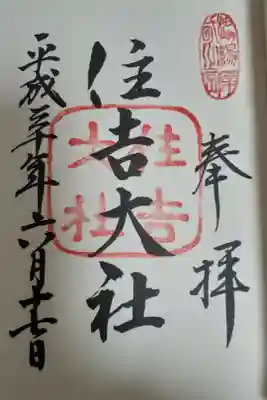 奉拝
住吉大社
平成三十年六月十七日
住吉大社